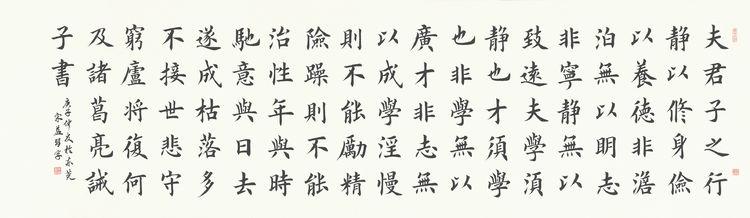 夫君子之行
静以修身儉
以養德非澹
泊無以明志
非寧静無以
致遠夫學須
静也才須學
也非學無以
廣才非志無
以成學淫慢
則不能勵精
險躁則不能
治性年與時
馳意與日去
遂成枯落多
不接世悲守
窮廬將復何
及諸葛亮誡
子書
庚子仲夏於東莞